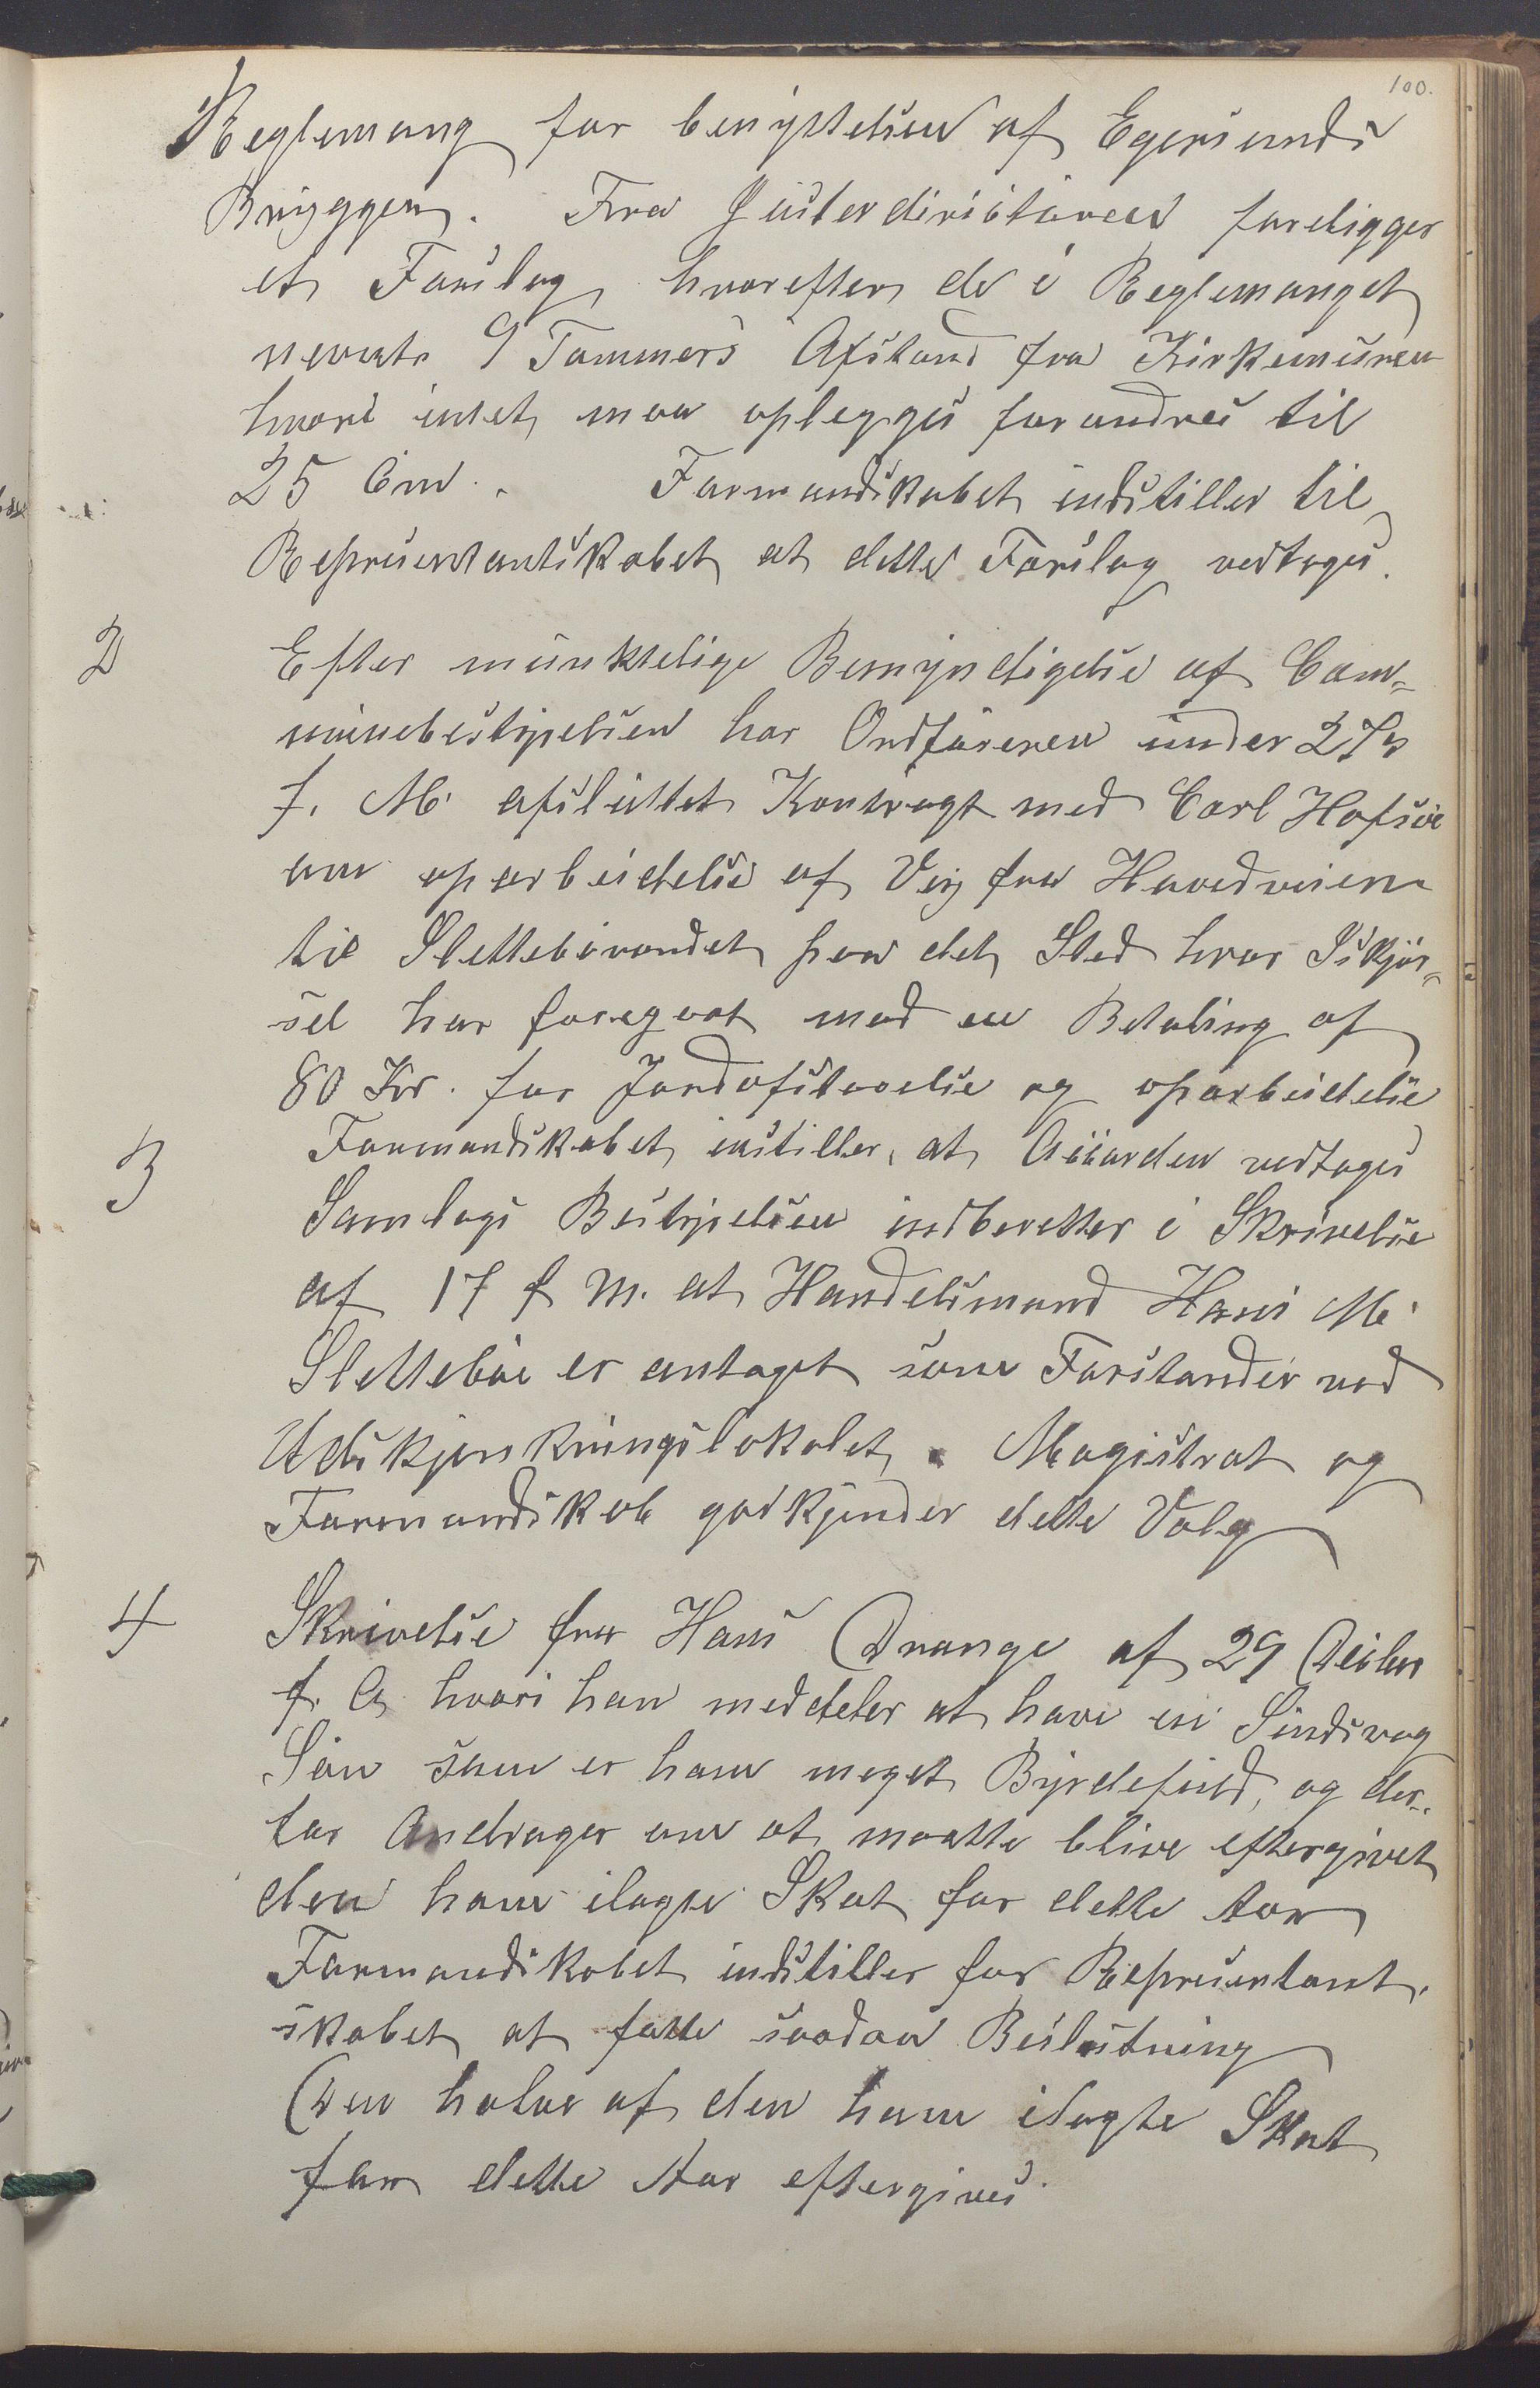 100.
Reglemang for benyttelsen af Egersunds
Bryggen. Fra Justerdirictøren foreligger
et Forslag hvorefter de i Reglemanget
nevnte 9 Tommers Afstand fra Kirkemuren
hvori intet maa oplegges forandres til
25 Cm. Formandskabet indstiller til
Represemtantskabet at dette Forslag vedtages.
2 Efter munktelige Bemyndigelse af Com-
munebestyrelsen har Ordføreren under 27
f. M. afsluttet Kontragt med Carl Hafsøe
om oparbeidelse af Vej fra Hovedveien
til Slettebøvandet paa det Sted hvor Iskjør-
sel har foregaat mod en Betaling af
80 Kr. for Jordafstaaelse og oparbeidelse
Formandskabet instiller, at Accorden vedtages
3 Samlags Bestyrelsen indberetter i Skrivelse
af 17 f M. at Handelsmand Hans M.
Slettebøe er antaget som Forstander ved
Udskjenkningslokalet. Magistrat og
Formandskab godkjender dette Valg
4 Skrivelse fra Hans Drange af 29 Decbr
f. A hvori han meddeler at have en Sindsvag
Søn som er ham meget Byrdefuld, og der-
for Andrager om at maatte blive eftergivet
den ham ilagte Skat for dette Aar
Formandskabet indstiller for Representant-
skabet at fatte saadan Beslutning
Den halve af den ham ilagte Skat
for dette Aar eftergives.